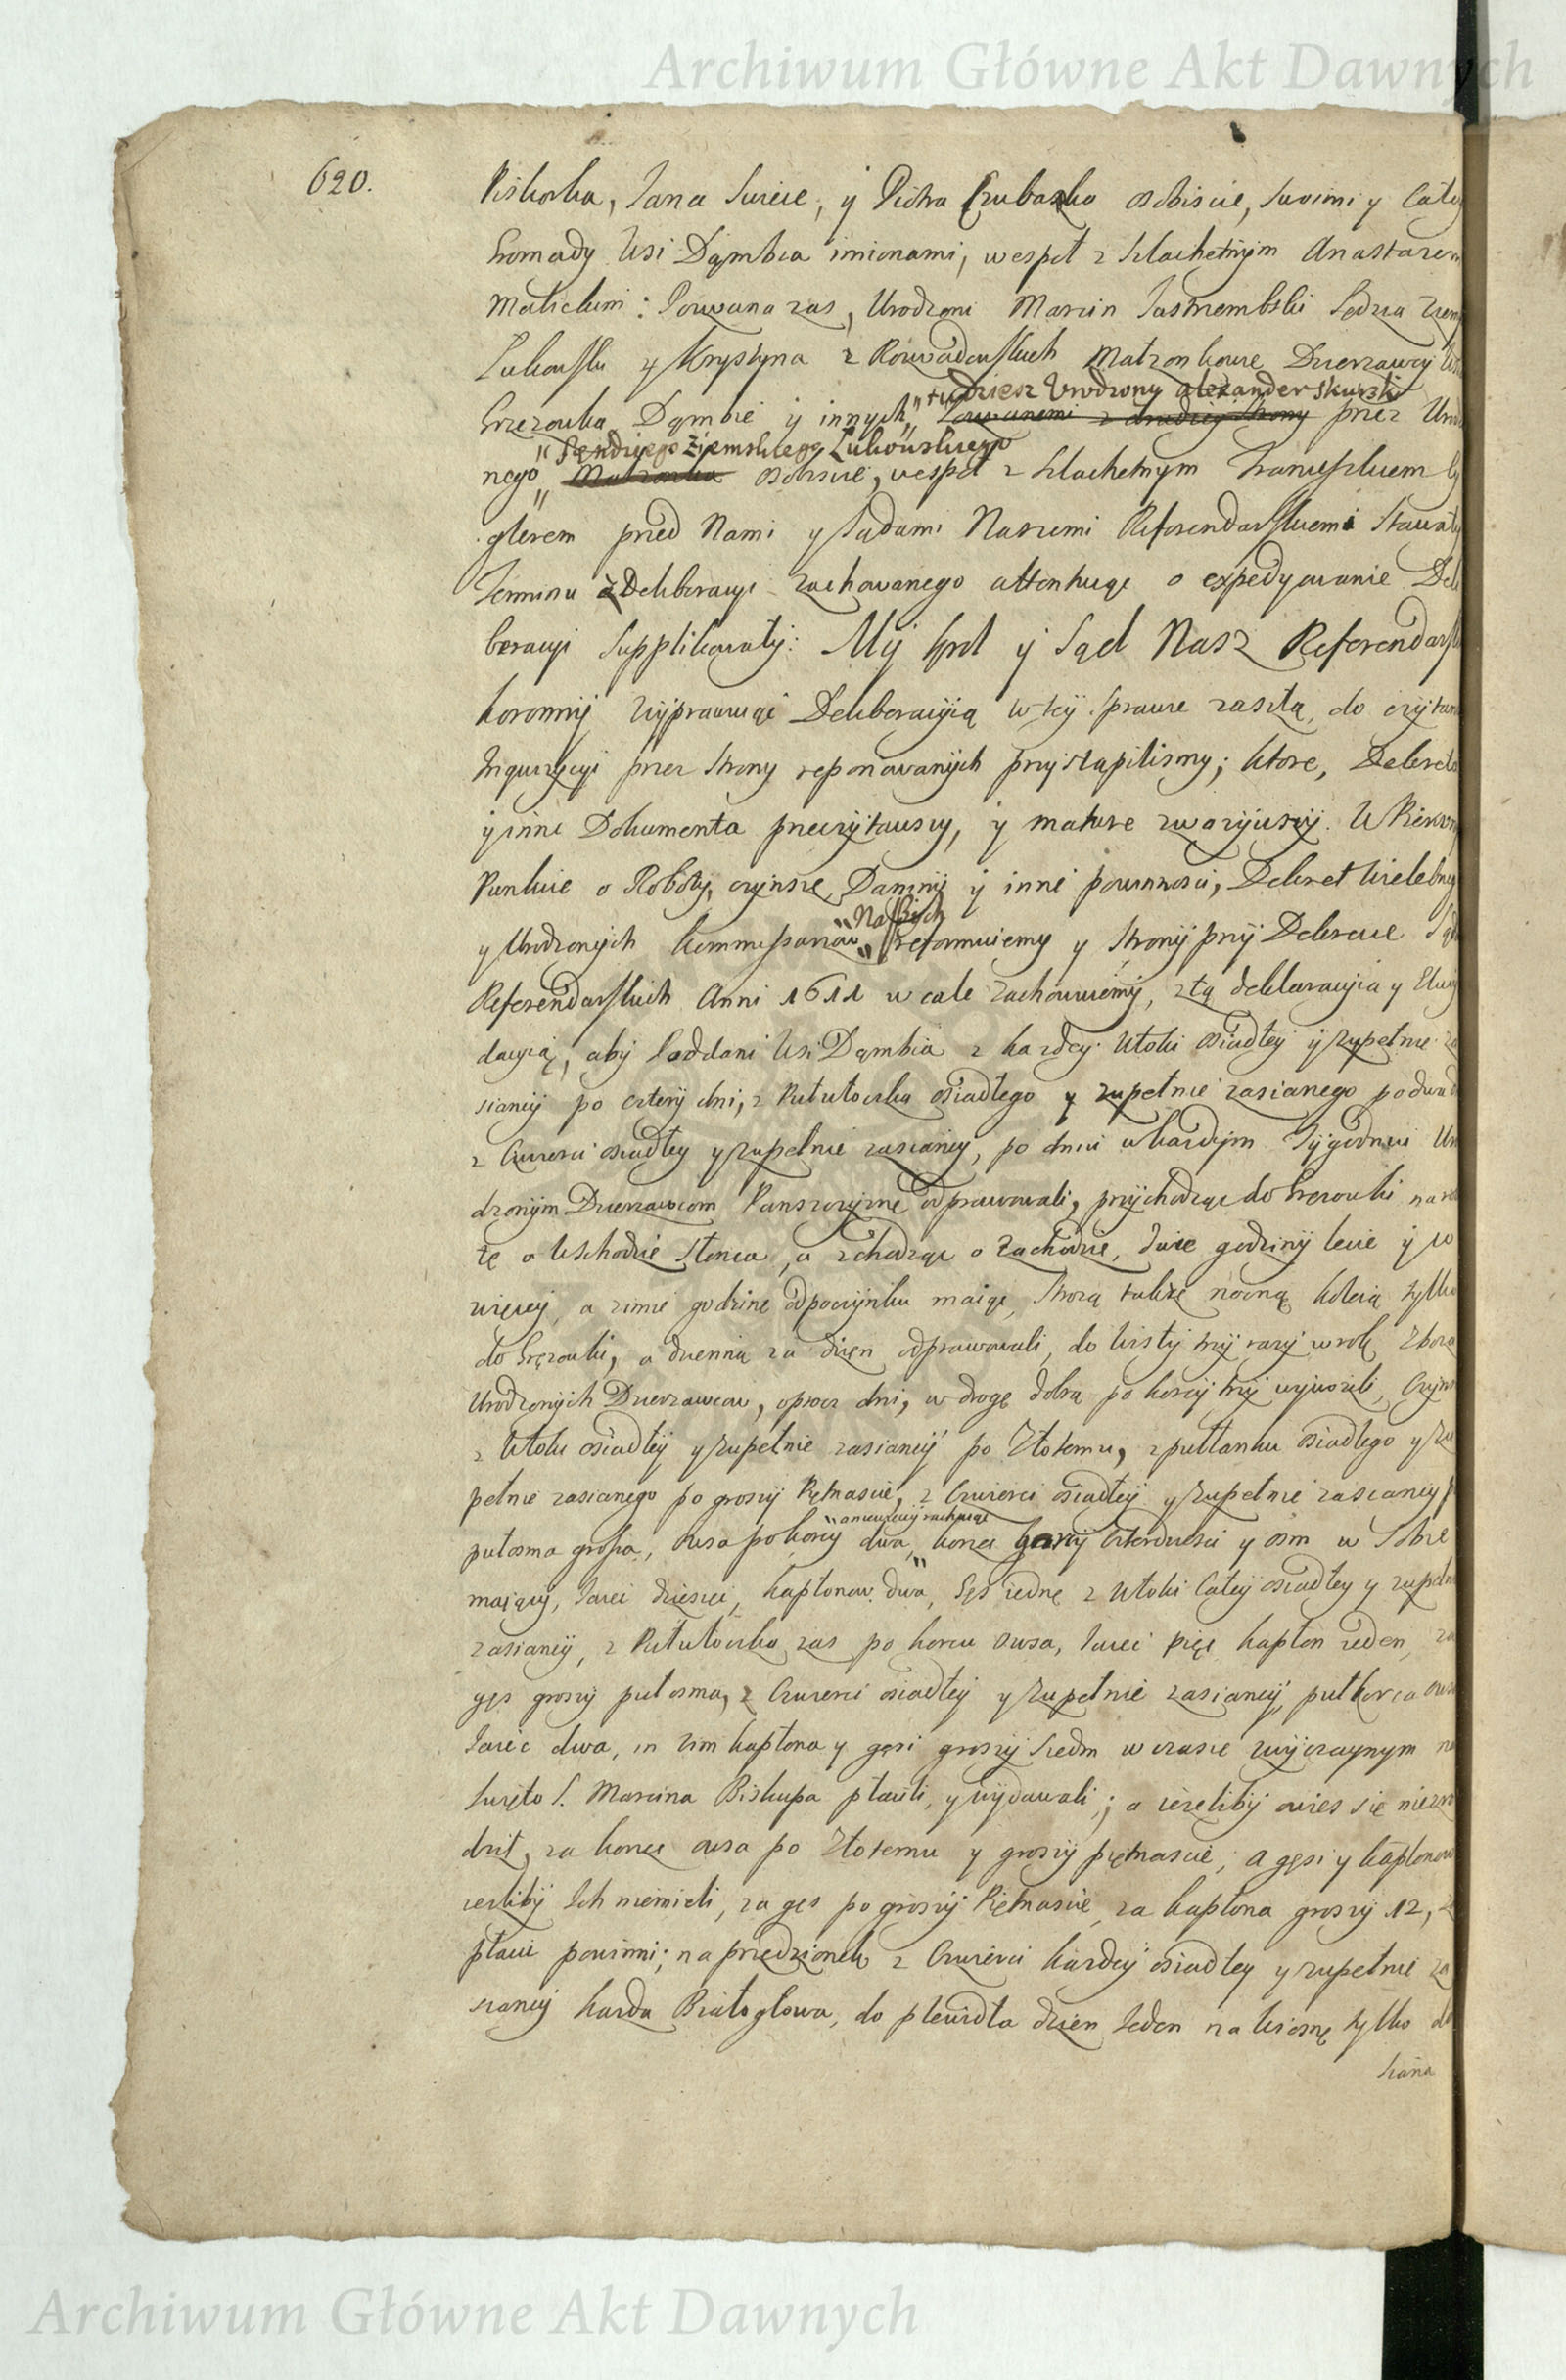 Archiwum Główne Akt Dawnych
620.
Piskorka, Jana Swiere, y Piotra Czubaszka osobiscie, swoimi y całey
Gromady Wsi Dąmbia imionami, wespoł z Szlachetnym Anastazem
Malickim: Pozwana zas, Urodzoni Marcin Jastrzembski Sędzia Ziem
Łukowski y Krystyna z Rozwadowskich Małzonkowie Dzierzawcy Wsi
tudziesz Urodzony Alexander Skurski
Grezowka Dąmbie y innych, Pozwanemi z drugiey strony przez Uro
Sęndziego Ziemskiego Łukowskiego
nego Małzonka osobiscie, wespoł z Szlachetnym Franciszkiem
glerem przed Nami y Sądami Naszemi Referendarskiemi stawały
Terminu z Deliberacyi zachowanego attentuiąc o expedyowanie Deli
beracyi supplikowały: My Krol y Sąd Nasz Referendarski
Koronny wyprawuiąc Deliberacyią w tey sprawie zaszłą, do czytania
Inquizycyi przez strony reponowanych przystąpilismy; ktore, Dekreta
y inne Dokumenta przeczytawszy, y mature zwazywszy. W Pierwszym
Punkcie o Roboty, czynsze, Daniny y inne powinnosci, Dekret Wielebnych
Naszych
y Urodzonych Kommissarzow reformuiemy y strony przy Dekrecie Sądow
Referendarskich Anni 1611 w cale zachowuiemy, z tą deklaracyią y Eluci
dacyią, aby Poddani Wsi Dąmbia z kazdey Włoki osiadłey y zupełnie za
sianey po cztery dni, z Pułwłoczka osiadłego y zupełnie zasianego po dwa d
z Cwierci osiadłey y zupełnie zasianey, po dniu w kazdym Tygodniu Uro
dzonym Dzierzawcom Panszczyznę odprawowali, przychodząc do Grezowki na ro
tę o Wschodzie Słonca, a zchodząc o Zachodzie, dwie godziny lecie y w
więcey, a zimie godzinę odpoczynku maiąc, Strozą takze nocną koleią tylko
do Grezowki, a dzienną za dzien odprawowali, do Wisły trzy razy w rok Zboza
Urodzonych Dzierzawcow, oprocz dni, w drogę dobrą po korcy trzy wywozili, Czynsz
z Włoki osiadłey y zupełnie zasianey po Złotemu, z pułłanku osiadłego y zu
pełnie zasianego po groszy Piętnascie, z Cwierci osiadłey y zupełnie zasianey p
a nie więcey rachuiąc
pułosma grosza, owsa po korcy dwa, korzec garcy czterdziesci y osm w sobie
maiący, Jaiec dziesięc, kapłonow dwa, Gęs iednę z Włoki całey osiadłey y zupełnie
zasianey, z Pułwłoczka zas po korcu owsa, Jaiec pięc kapłon ieden, za
gęs groszy pułosma, z Cwierci osiadłey y zupełnie zasianey, pułkorca owsa
Jaiec dwa, in vim kapłona y gęsi groszy siedm w czasie zwyczaynym na
Swięto S. Marcina Biskupa płacili, y wydawali; a iezeliby owies się nieuro
dził, za korzec owsa po Złotemu y groszy piętnascie, a gęsi y kapłonow
iezliby ich niemieli, za gęs po groszy Piętnascie, za kapłona groszy 12, z
płacic powinni; na przędzionek z Cwierci kazdey osiadłey y zupełnie za
sianey kazda Białogłowa, do plewidła dzien ieden na wiosnę tylko do
Archiwum Główne Akt Dawnych